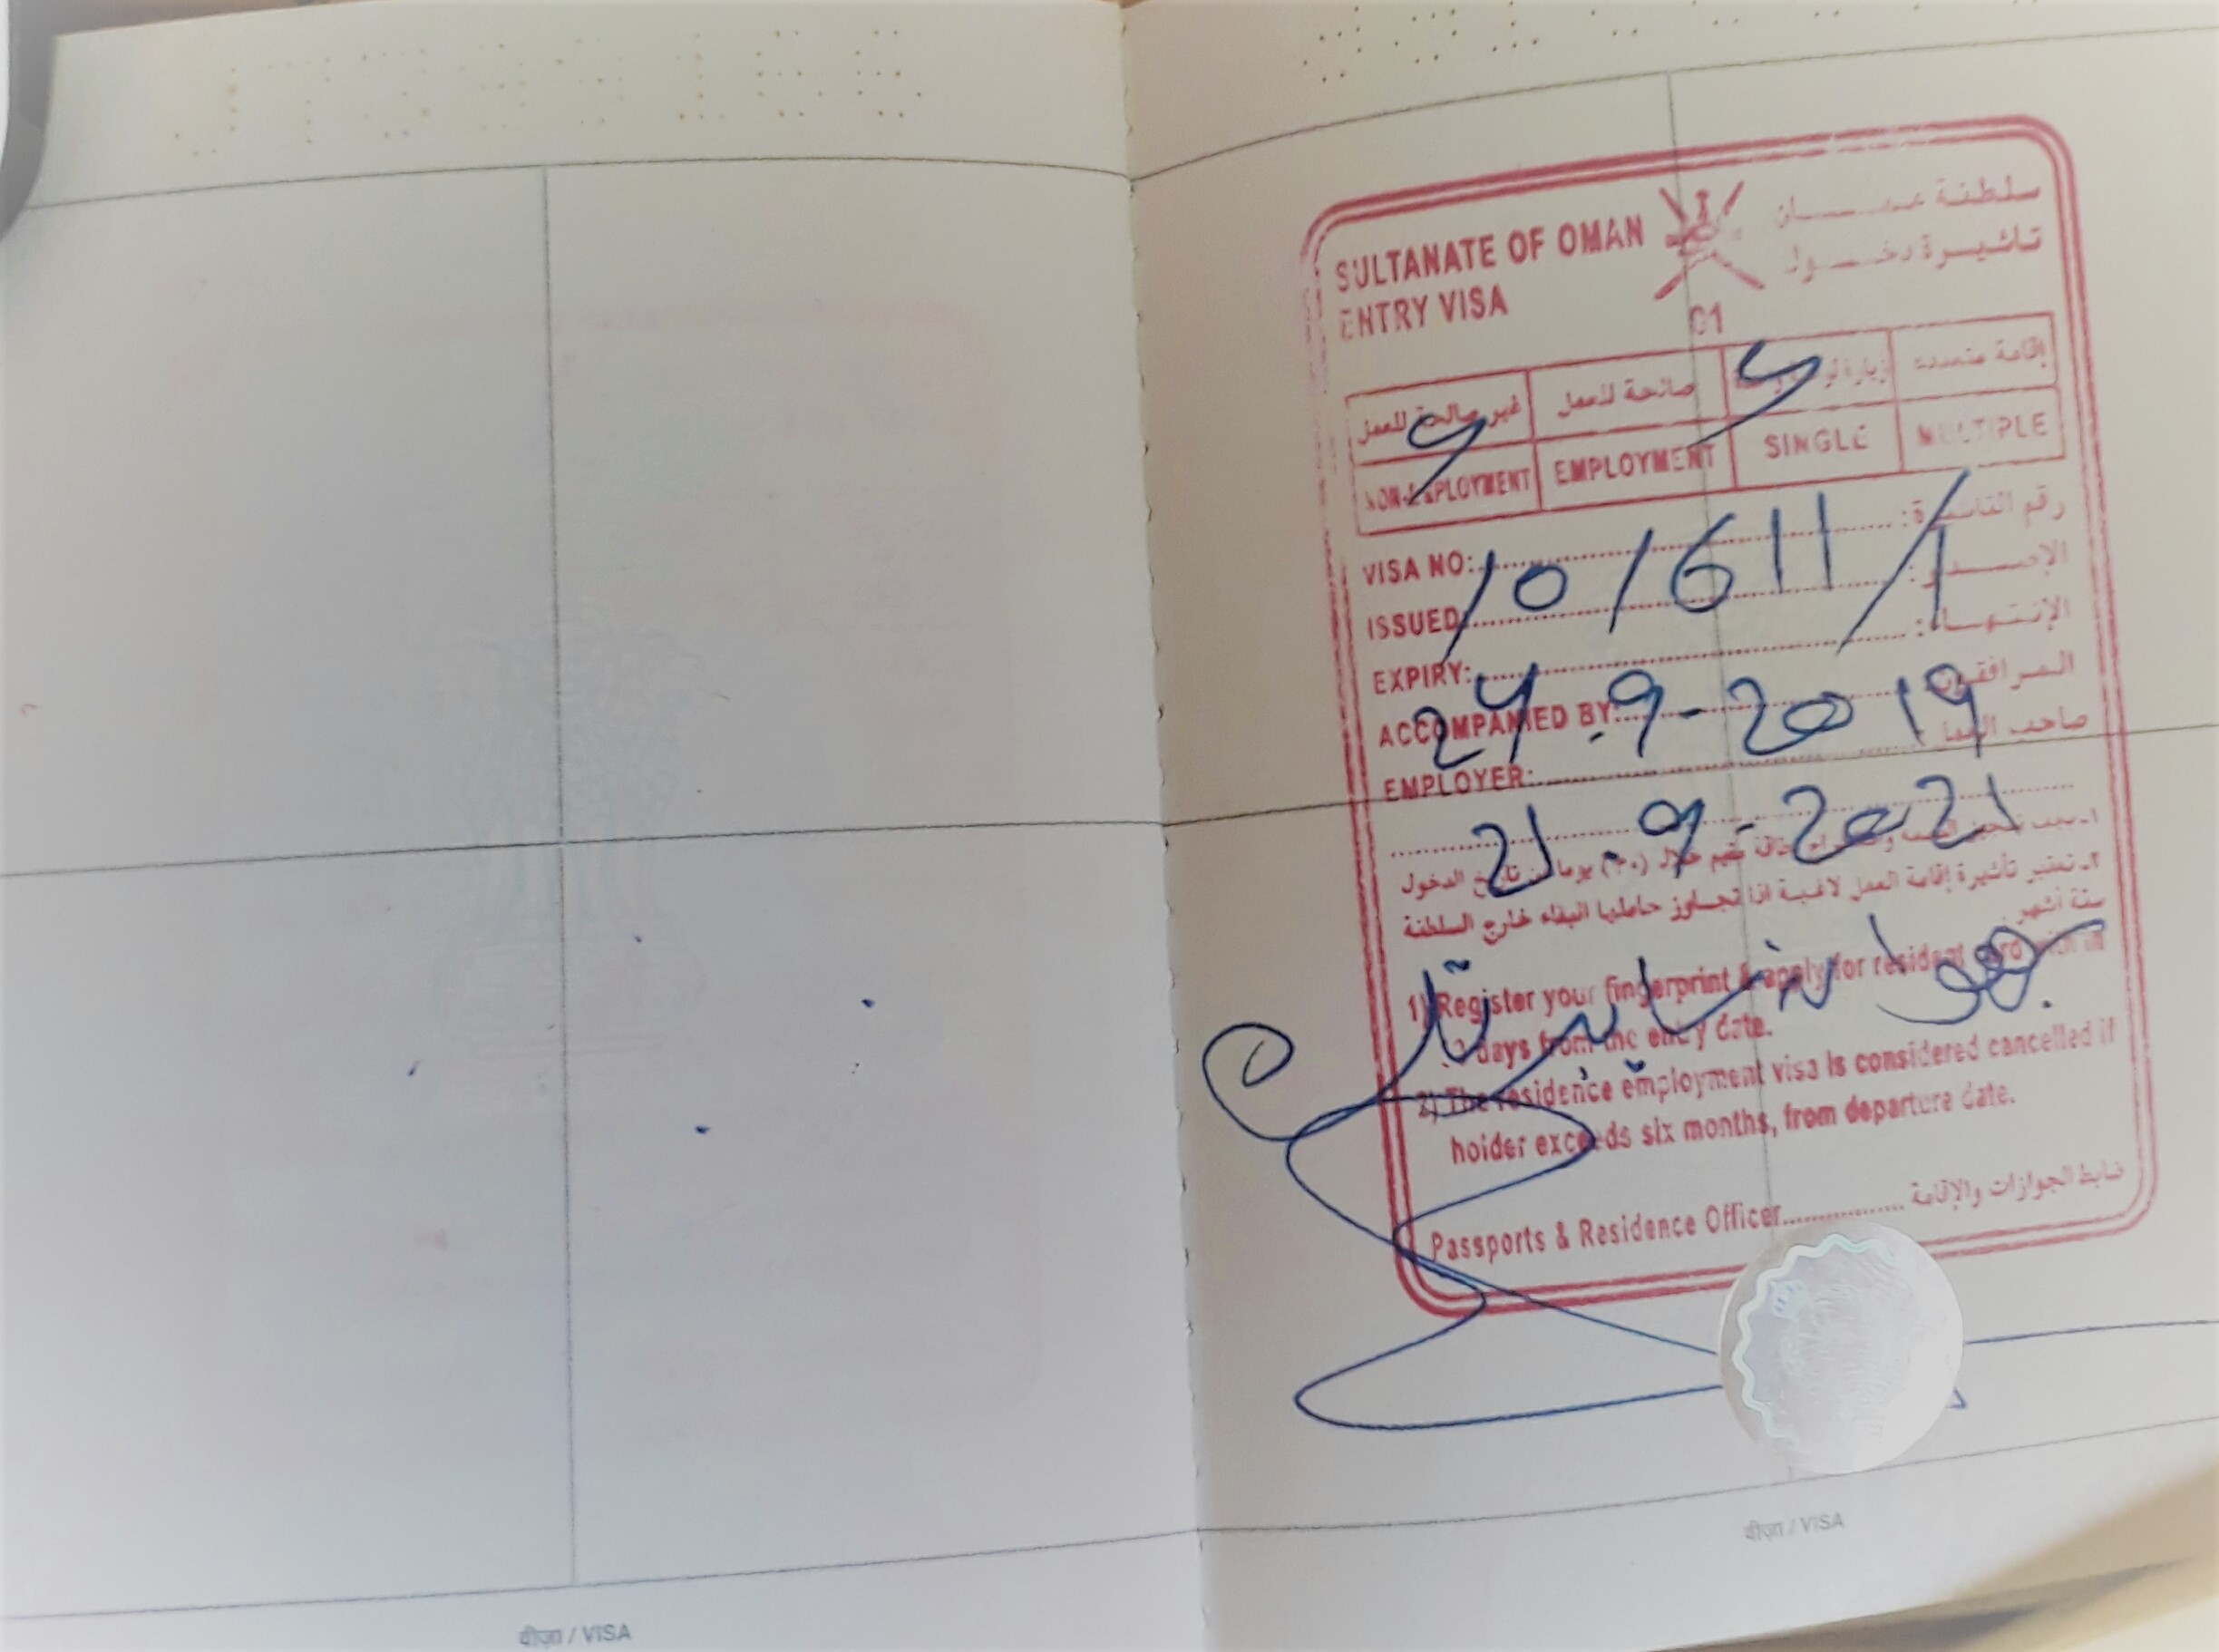 SULTANATE OF OMAN سلطنة عمان
ENTRY VISA تأشيرة دخول
01
غير صالحة للعمل صالحة للعمل زيارة إقامة متعددة
NON-EMPLOYMENT EMPLOYMENT SINGLE MULTIPLE
VISA NO: رقم التأشيرة:
/0/611/1
ISSUED الإصدار:
EXPIRY: الإنتهاء:
ACCOMPANIED BY: المرافقون
-9-2019
EMPLOYER: صاحب العمل
21-9-2021
يوما من تاريخ الدخول
٢ـ تعتبر تأشيرة إقامة العمل لاغية اذا تجاوز حاملها البقاء خارج السلطنة
ستة أشهر.
1) Register your fingerprint & apply for resident card with in
days from the entry date.
2) The residence employment visa is considered cancelled if
holder exceeds six months, from departure date.
Passports & Residence Officer ضابط الجوازات والإقامة
वीज़ा / VISA
वीज़ा / VISA